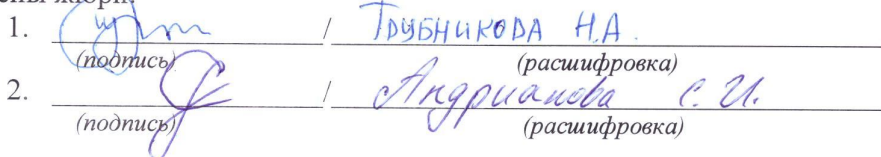 жюри:
1. / Трубникова Н.А.
(подпись) (расшифровка)
2. / Андрианова С. И.
(подпись) (расшифровка)